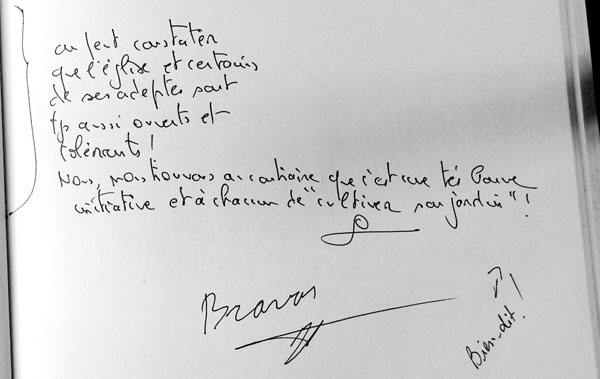 on peut constater
que l'église et certains
de ses adeptes sont
tjs aussi ouverts et
tolérants !
Nous, nous trouvons au contraire que c'est une très bonne
initiative et à chacun de "cultiver son jardin" !
Bravo
Bien-dit !